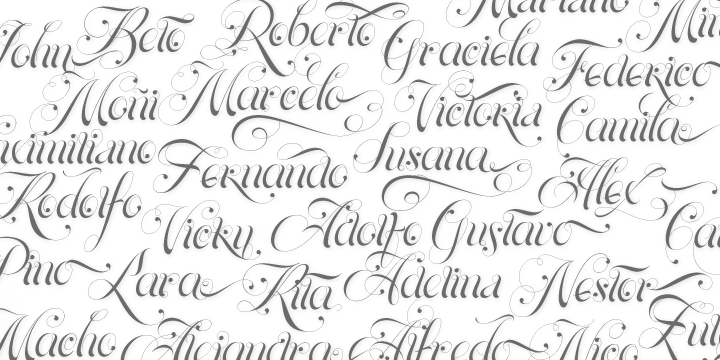 John Beto Roberto Graciela Mariano
Moñi Marcelo Victoria Federico
Maximiliano Fernando Susana Camila
Rodolfo Vicky Adolfo Gustavo Alex
Pino Lara Rita Adelina Nestor
Macho Alejandra Alfredo Nico